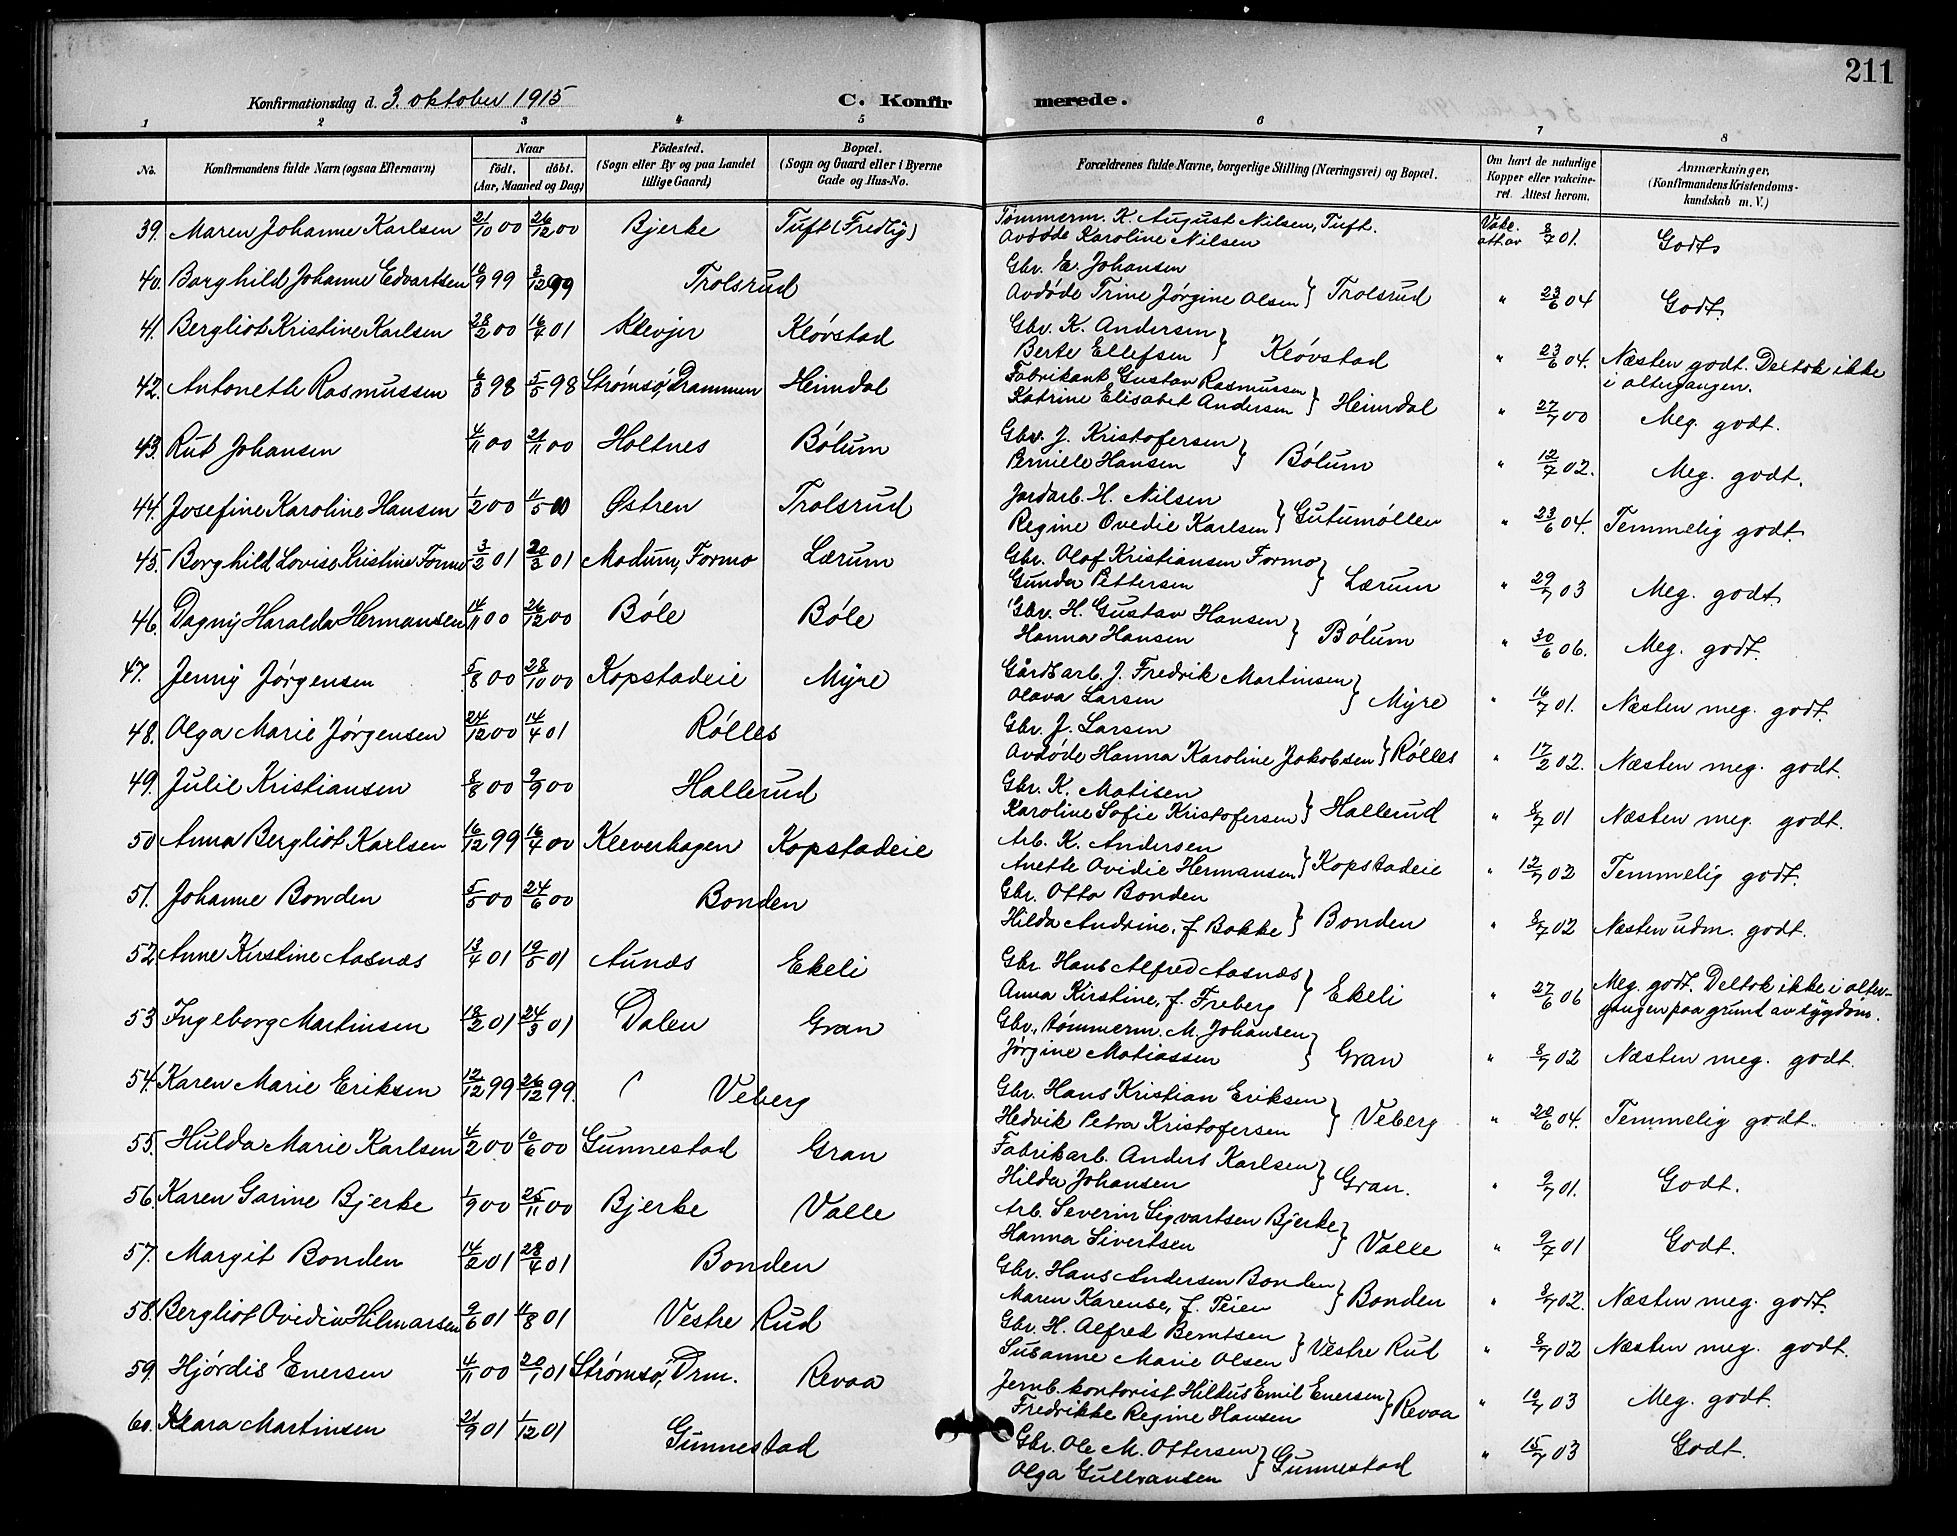 211
Konfirmationsdag d. 3. oktober 1915
C. Konfirmerede.
1 2 3 4 5 6 7 8
No. Konfirmandens fulde Navn (ogsaa Efternavn) Naar født. døbt. (Aar, Maaned og Dag) Fødested. (Sogn eller By og paa Landet tillige Gaard) Bopæl. (Sogn og Gaard eller i Byerne Gade og Hus-No. Forældrenes fulde Navne, borgerlige Stilling (Næringsvei) og Bopæl. Om havt de naturlige Kopper eller vakcineret. Attest herom. Anmærkninger, (Konfirmandens Kristendomskundskab m. V.)
39. Maren Johanne Karlsen 21/10 00 26/12 00 Bjerke Tuft (Fredlig) Tømmerm. K. August Nilsen, Tuft. Vakc. att av 8/7 01. Godt
Avdøde Karoline Nilsen
40. Borghild Johanne Edvartsen 18/9 99 3/12 99 Trolsrud Gbr. E. Johansen
Avdøde Trine Jørgine Olsen } Trolsrud " 23/6 04 Godt.
41. Bergliot Kristine Karlsen 28/2 00 16/4 01 Klevjer Kløvstad Gbr. K. Andersen
Berte Ellefsen } Kløvstad " 23/6 04. Næsten godt. Deltok ikke
i altergangen.
42. Antonette Rasmussen 6/3 98 5/5 98 Strømsø, Drammen Heimdal Fabrikant Gustav Rasmussen
Katrine Elisabet Andersen } Heimdal " 27/7 00 Meg. godt.
43. Rut Johansen 4/11 00 21/11 00 Holtnes Bølum Gbr. J. Kristofersen
Pernille Hansen } Bølum " 12/7 02. Meg. godt.
44. Josefine Karoline Hansen 1/2 00 11/5 00 Østren Trolsrud Jordarb. H. Nilsen
Regine Ovedie Karlsen } Gutumøllen " 23/6 04. Temmelig godt
45. Borghild Lovise Kristine Formo 3/2 01 20/3 01 Modum, Formo Lærum Gbr. Olaf Kristiansen Formo
Gunda Pettersen } Lærum " 29/7 03 Meg. godt.
46. Dagny Haralda Hermansen 14/11 00 26/12 00 Bøle Bøle Gbr. H. Gustav Hansen
Hanna Hansen } Bølum " 30/6 06. Meg. godt.
47. Jenny Jørgensen 5/8 00 28/10 00 Kopstadeie Myre Gårdsarb. J. Fredrik Martinsen
Olava Larsen } Myre " 16/7 01. Næsten meg. godt.
48. Olga Marie Jørgensen 24/12 00 14/4 01 Rølles Gbr. J. Larsen
Avdøde Hanna Karoline Jakobsen } Rølles " 17/2 02. Næsten meg. godt.
49. Julie Kristiansen 8/8 00 9/9 00 Hallerud Gbr. K. Matisen
Karoline Sofie Kristofersen } Hallerud " 8/7 01 Næsten meg. godt.
50 Anna Bergliot Karlsen 16/12 99 16/4 00 Kleverhagen Kopstadeie Arb. K. Andersen
Anette Ovidie Hermansen } Kopstadeie " 12/7 02 Temmelig godt.
51. Johanne Bonden 5/5 00 24/6 00 Bonden Gbr. Otto Bonden
Hilda Andrine, f. Bakke } Bonden " 8/7 02 Næsten udm. godt.
52 Anne Kirstine Aasnæs 13/4 01 19/5 01 Aunæs Ekeli Gbr. Hans Alfred Aasnæs
Anna Kirstine, f. Freberg } Ekeli " 27/6 06 Meg. godt. Deltok ikke i alter-
gangen paa grunt av sygdom.
53 Ingeborg Martinsen 18/2 01 24/3 01 Dalen Gran Gbr., tømmerm. M. Johansen
Jørgine Matiassen } Gran " 8/7 02 Næsten meg. godt.
54. Karen Marie Eriksen 12/12 99 26/12 99. Veberg Gbr. Hans Kristian Eriksen
Hedvik Petra Kristofersen } Veberg " 20/6 04. Temmelig godt.
55. Hulda Marie Karlsen 4/2 00 10/6 00 Gunnestad Gran Fabrikarb. Anders Karlsen
Hilda Johansen } Gran. " 9/7 01. Godt.
56. Karen Garine Bjerke 1/9 00 25/11 00 Bjerke Valle Arb. Severin Sigvartsen Bjerke
Hanna Sivertsen } Valle " 9/7 01 Godt.
57. Margit Bonden 14/2 01 28/4 01 Bonden Gbr. Hans Andersen Bonden
Maren Karense, f. Teien } Bonden " 8/7 02. Næsten meg. godt.
58. Bergliot Ovidia Hilmarsen 9/6 01 4/8 01 Vestre Rud Gbr. H. Alfred Berntsen
Susanne Marie Olsen } Vestre Rud " 8/7 02 Næsten meg. godt.
59. Hjørdis Enersen 4/11 00 20/1 01 Strømsø, Drm. Revaa Jernb. kontorist Hildus Emil Enersen
Fredrikke Regine Hansen } Revaa " 10/7 03 Meg. godt.
60. Klara Martinsen 21/9 01 1/12 01 Gunnestad Gbr. Ole M. Ottersen
Olga Gullvansen } Gunnestad " 15/7 03 Godt.